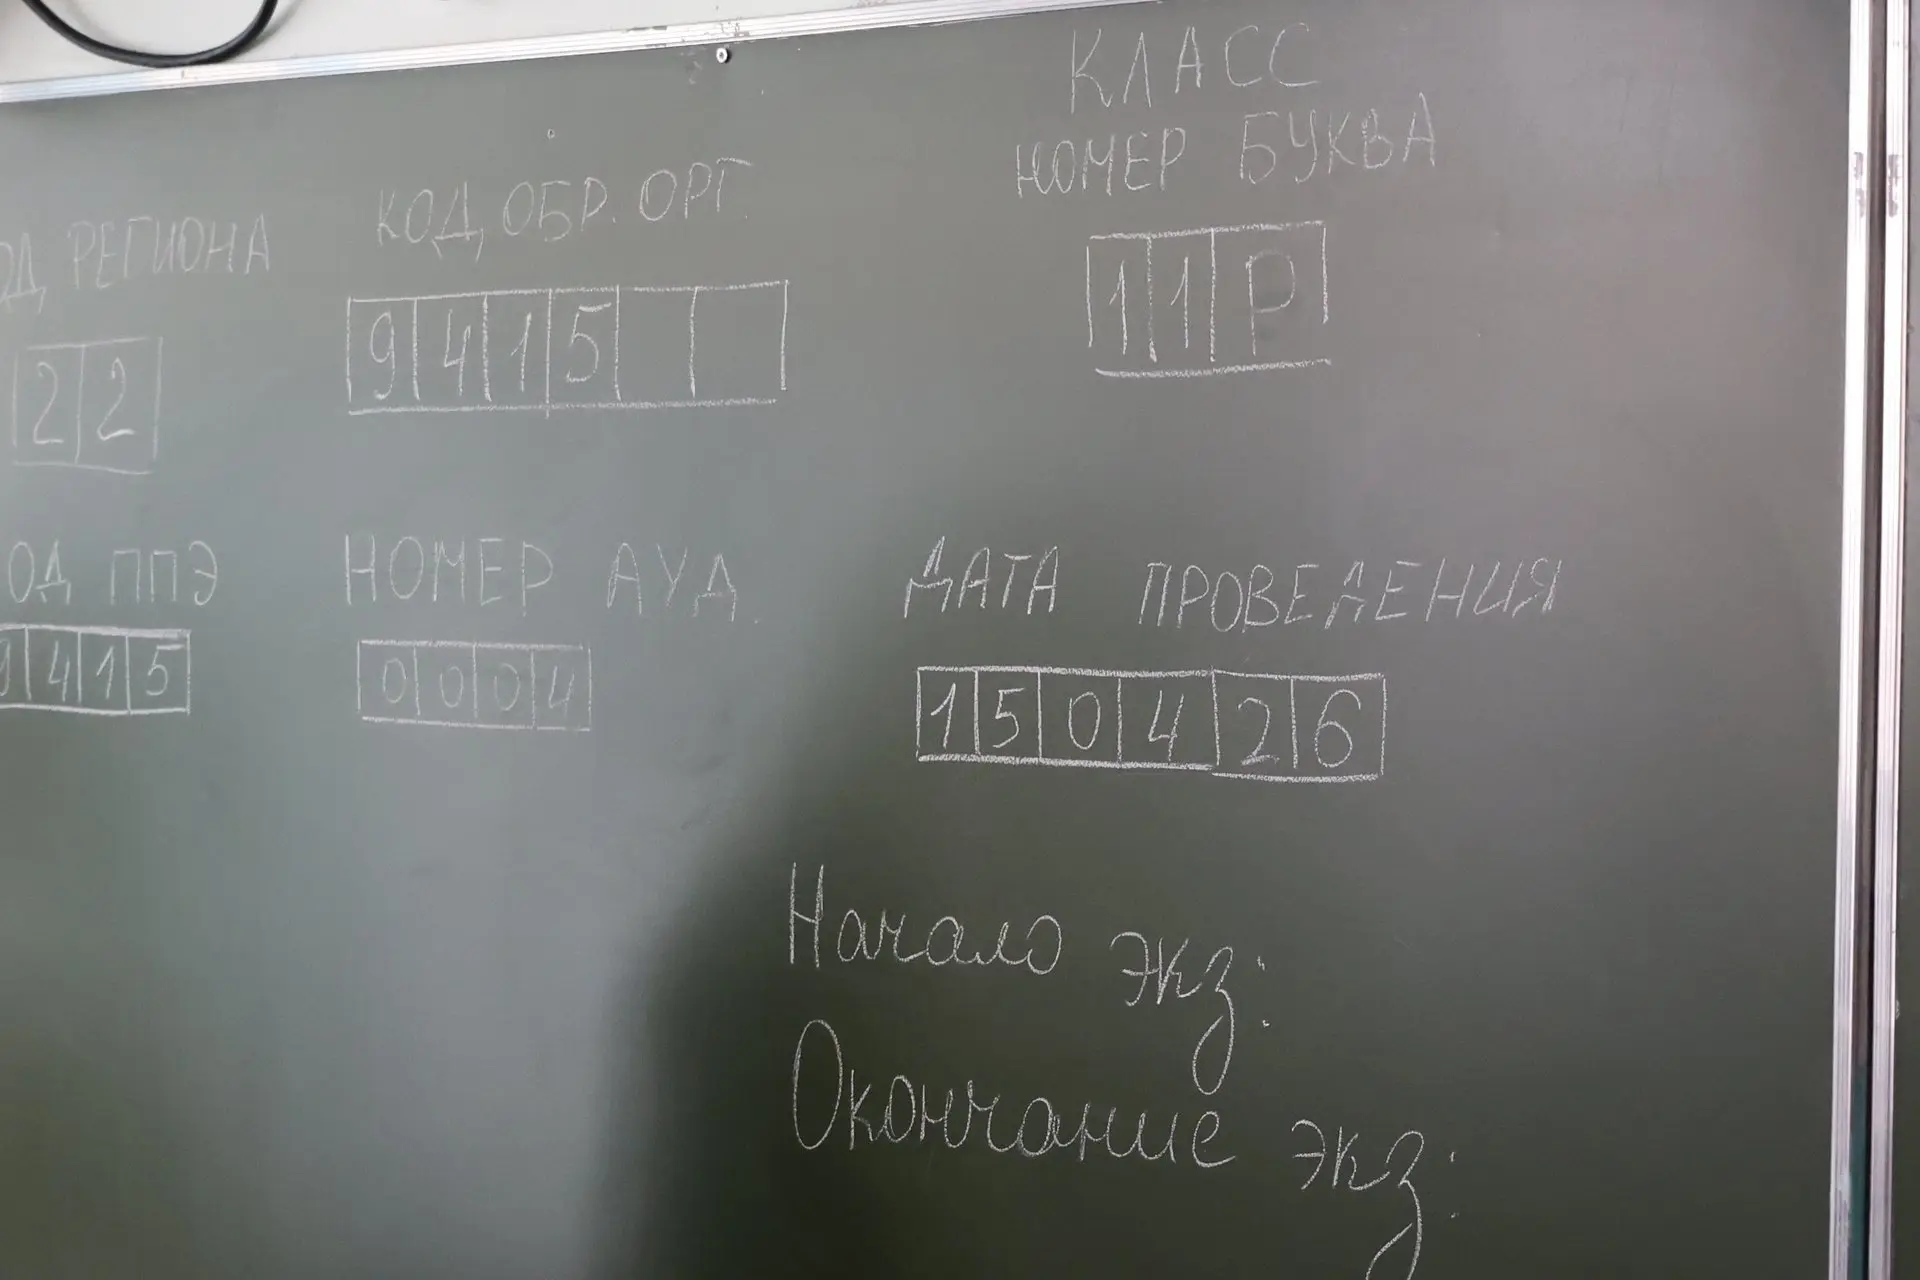 КЛАСС
НОМЕР БУКВА
ОД РЕГИОНА КОД ОБР. ОРГ
22 9415 11Р
ОД ППЭ НОМЕР АУД. ДАТА ПРОВЕДЕНИЯ
9415 0004 150426
Начало экз:
Окончание экз: